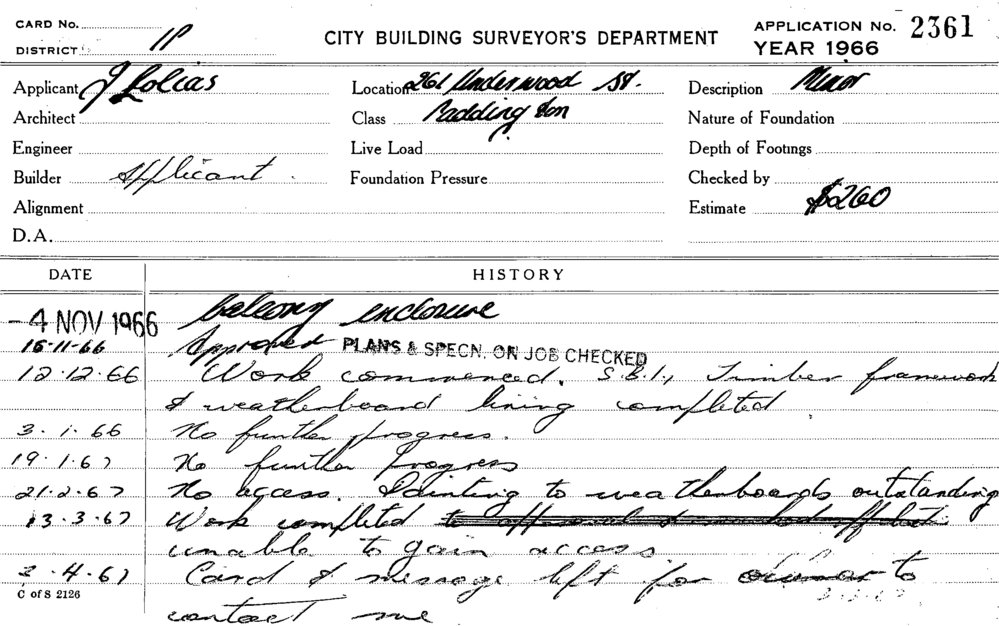 CARD No.
DISTRICT
CITY BUILDING SURVEYOR'S DEPARTMENT
APPLICATION No. 2361
YEAR 1966
Applicant J Lolias
Location 261 Underwood St.
Description Minor
Architect
Class Paddington
Nature of Foundation
Engineer
Live Load
Depth of Footings
Builder Applicant.
Foundation Pressure
Checked by
Alignment
Estimate $260
D.A.
DATE HISTORY
- 4 NOV 1966 balcony enclosure
15-11-66 Approved PLANS & SPECN. ON JOB CHECKED
12.12.66 Work commenced. S.B.I., Timber framework
& weatherboard lining completed
3.1.66 No further progress.
19.1.67 No further progress
21.2.67 No access. Painting to weatherboards outstanding
13.3.67 Work completed
unable to gain access
3.4.67 Card & message left for owner to
C of S 2126
contact me